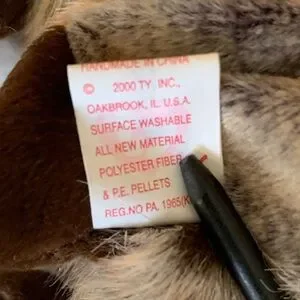 HANDMADE IN CHINA
© 2000 TY INC.,
OAKBROOK, IL. U.S.A.
SURFACE WASHABLE
ALL NEW MATERIAL
POLYESTER FIBER
& P.E. PELLETS
REG.NO PA. 1965(K